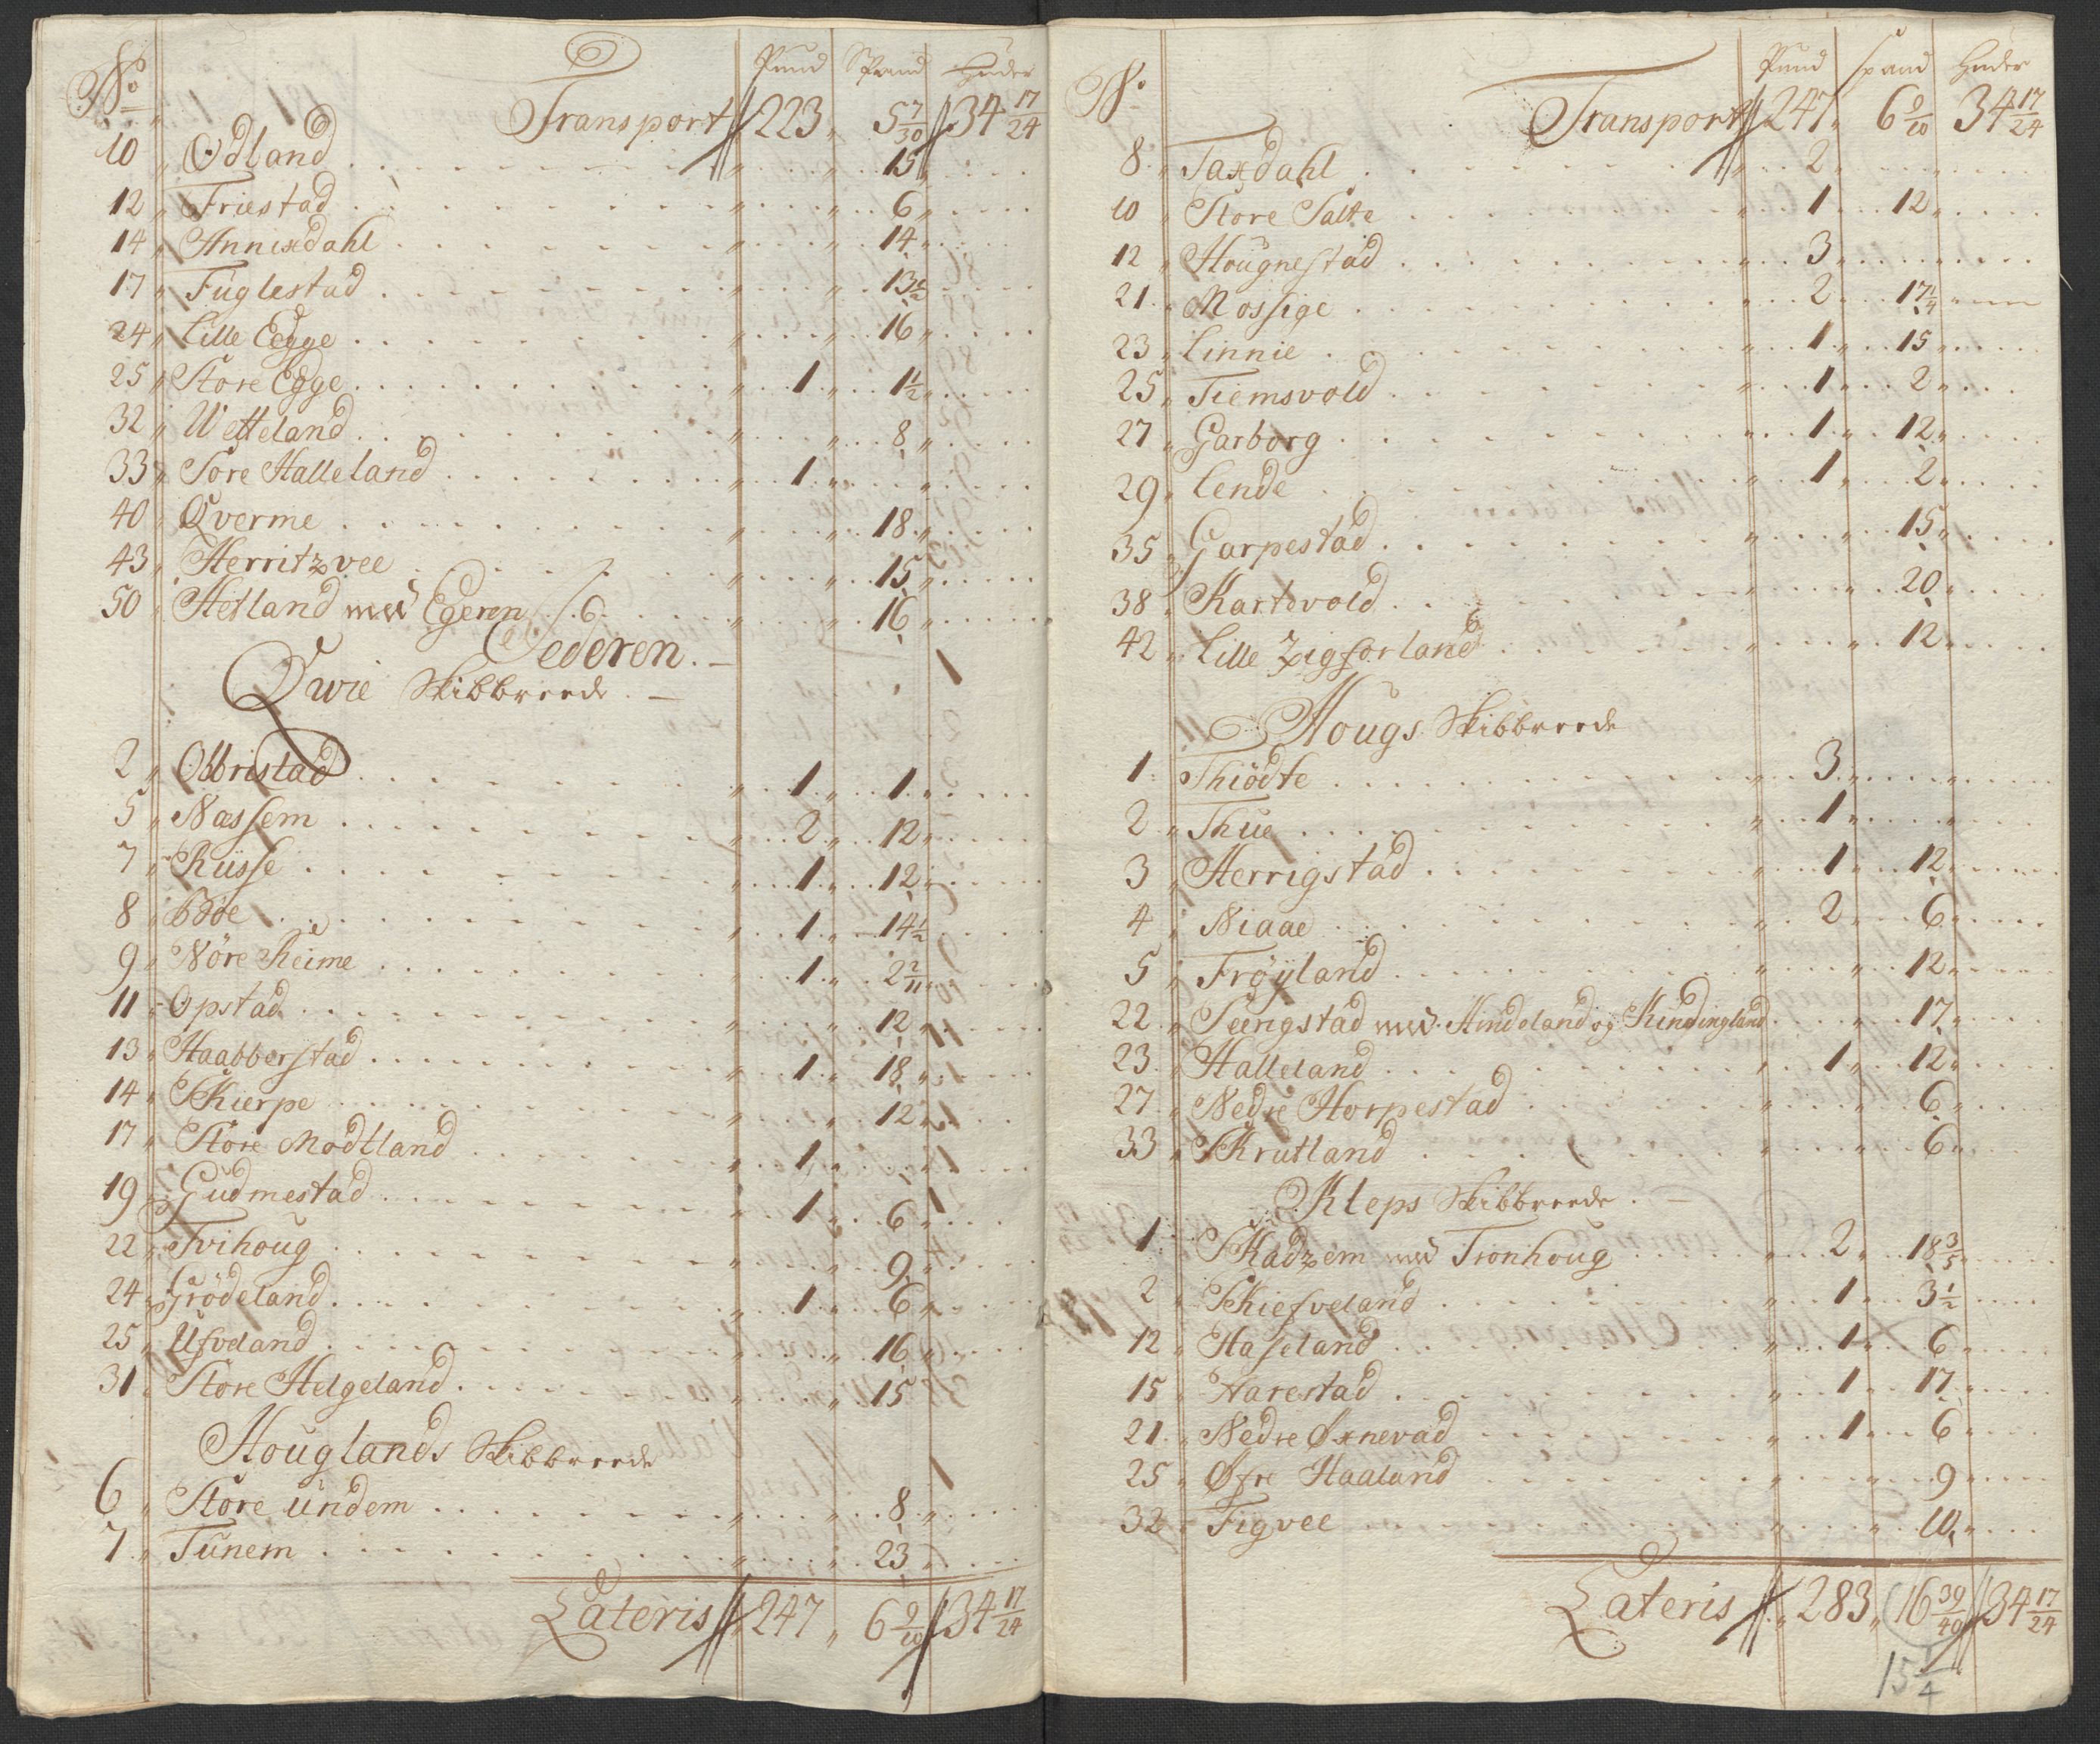 No Pund Spand Huder
Transport 223 5 7/30 34 17/24
10 Ødland 15
12 Friestad 6
14 Annisdahl 14
17 Fuglestad 13 1/2
24 Lille Eegge 16
25 Store Egge 1 1 1/2
32 Wetteland 8
33 Sore Halleland 1
40 Qverme 18
43 Herritzvee 15
50 Hetland med Egeren 16
Jederen.
Qwie Skibbreede
2 Obbristad 1 1
5 Næssem 2 12
7 Russe 1 12
8 Böe 1 14 1/2
9 Nöre Reime 1 2 2/11
11 Opstad 12
13 Haabberstad 1 18
14 Skierpe 12
17 Store Modtland 1
19 Gudmestad 1 6
22 Tvihoug 9
24 Grödeland 1 6
25 Ufveland 16
31 Store Helgeland 15
Houglands Skibbreede
6 Store Undem 8
7 Tunem 23
Lateris 247 6 9/10 34 17/24
No Pund Spand Huder
Transport 247 6 9/10 34 17/24
8 Taxdahl 2
10 Store Salte 1 12
12 Hougnestad 3
21 Mossige 2 17 1/4
23 Linnie 1 15
25 Tiemsvold 1 2
27 Garborg 1 12
29 Lende 1 2
35 Garpestad 15
38 Kartevold 20
42 Lille Zigsorland 12
Hougs Skibbreede
1 Thiödte 3
2 Thue 1
3 Herrigstad 1 12
4 Niaae 2 6
5 Fröyland 12
22 Seengstad med Hindeland og Kindingland 17
23 Halleland 1 12
27 Nedre Horpestad 6
33 Skrutland 6
Kleps Skibbreede
1 Skadzem med Tronhoug 2 18 3/5
2 Skiefveland 1 3 1/2
12 Haseland 1 6
15 Harestad 1 17
21 Nedre Øxnevad 1 6
25 Øfre Haaland 9
32 Figvee 10
Lateris 283 16 39/40 34 17/24
15 1/4